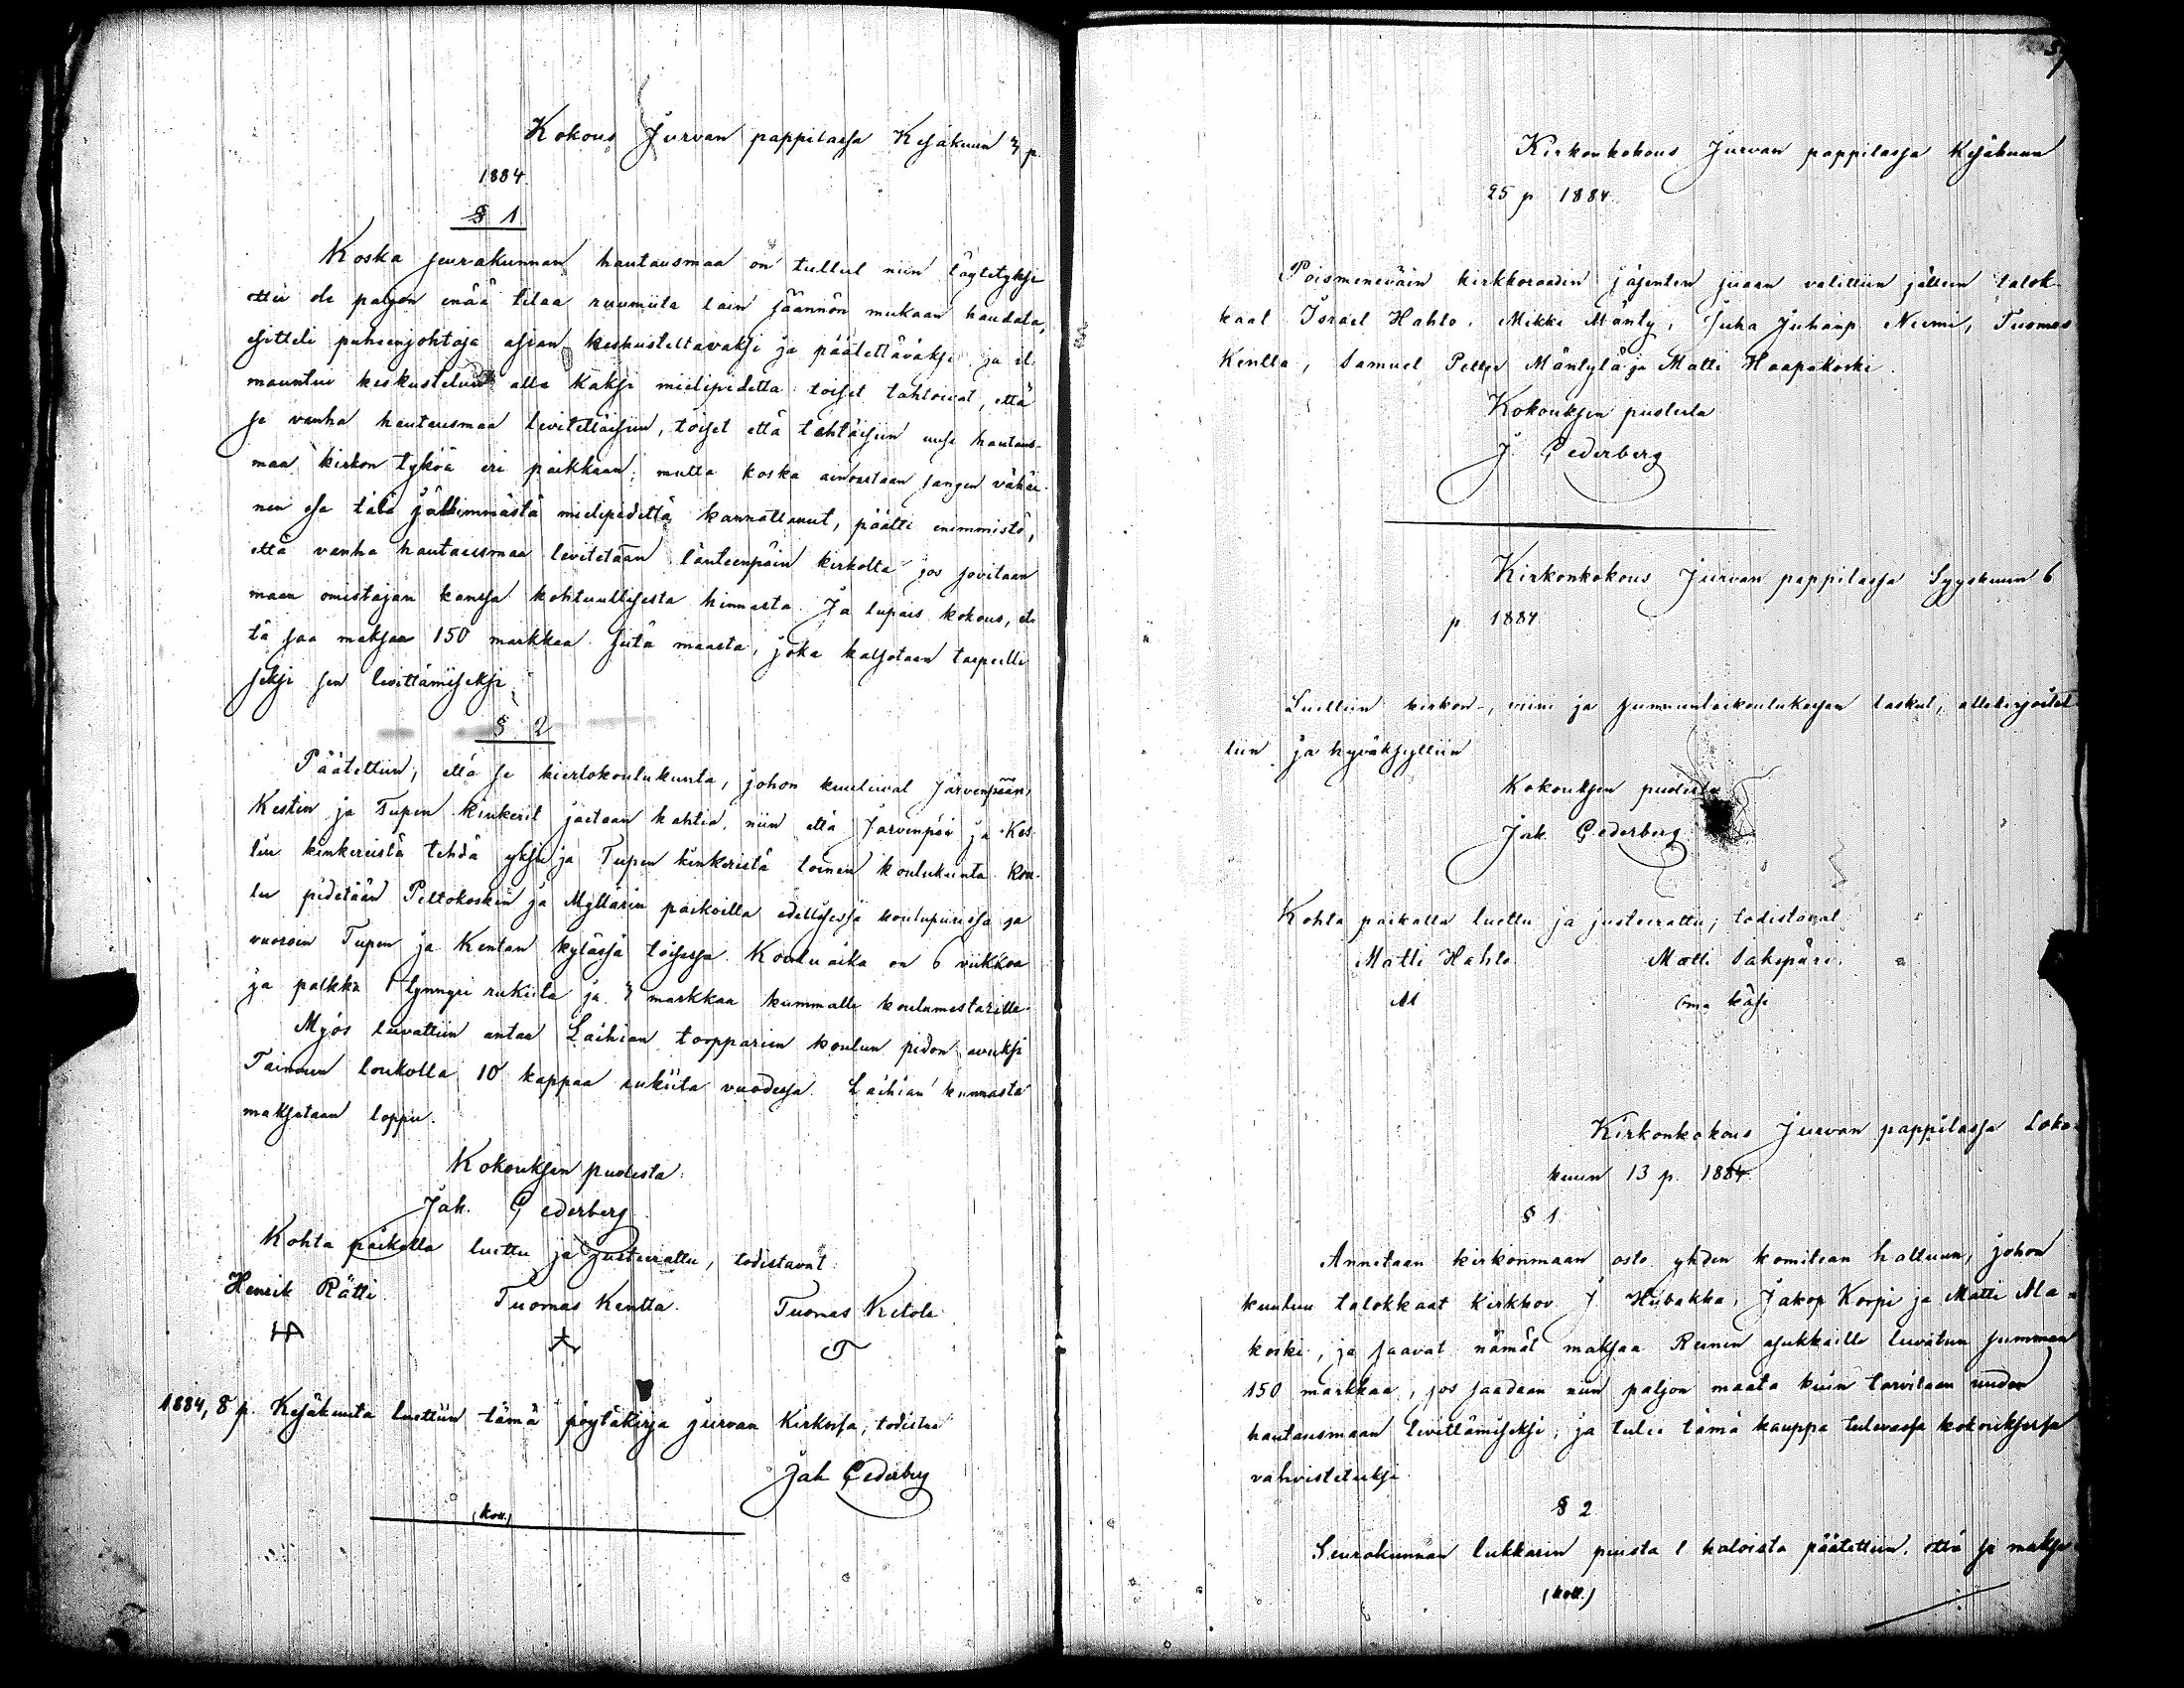 Kokous Jurvan pappilassa Kesäkuun 3 p.
1884.
§ 1.
Koska seurakunnan hautausmaa on tullut niin täytetyksi
ettei ole paljon enää tilaa ruumiita lain säännön mukaan haudata,
esitteli puheenjohtaja asian keskusteltavaksi ja päätettäväksi ja il-
mauntui keskustelun alla kaksi mielipidettä: toiset tahtoivat, että
se vanha hautausmaa levitettäisiin, toiset että tehtäisiin uusi hautaus-
maa kirkon tyköä eri paikkaan; mutta koska ainoastaan sangen vähäi-
nen osa tätä jälkimmäistä mielipidettä kannattanut, päätti enimmistö,
että vanha hautausmaa levitetään länteenpäin kirkolta jos sovitaan
maan omistajan kanssa kohtuullisesta hinnasta. Ja lupais kokous, et-
tä saa maksaa 150 markkaa siitä maasta, joka katsotaan tarpeelli-
seksi sen levittämiseksi.
§ 2
Päätettiin, että se kiertokoulukunta, johon kuuluvat Järvenpään,
Kestin ja Tupen kinkerit jaetaan kahtia, niin että Järvenpää ja Kes-
tin kinkeristä tehdä yksi ja Tupen kinkeristä toinen koulukunta. Kou-
lu pidetään Peltokosken ja Myllärin paikoilla edellisessä koulupiirissä ja
vuoroin Tupen ja Kentan kylässä toisessa. Kouluaika on 6 viikkoa
ja palkka 1 tynnyri rukiita ja 3 markkaa kummalle koulumestarille.
Myös luvattiin antaa Laihian torpparien koulun pidon avuksi
Tainuun loukolla 10 kappaa rukiita vuodessa. Laihian kunnasta
maksetaan loppu.
Kokouksen puolesta:
Jak. Cederberg
Kohta paikalla luettu ja justeerattu, todistavat:
Henrik Rätti. Tuomas Kentta. Tuomas Ketola
1884, 8 p. Kesäkuuta luettiin tämä pöytäkirja Jurvan Kirkossa, todistaa
Jak Cederberg
(kott.)
Kirkonkokous Jurvan pappilassa Kesäkuun
25 p 1884.
Poismeneväin kirkkoraadin jäsenten siaan valittiin jälleen talok-
kaat Israel Hahto, Mikki Mänty, Juha Juhanp. Niemi, Tuomas
Kentta, Samuel Mäntylä ja Matti Haapakoski.
Kokouksen puolesta
J. Cederberg
Kirkonkokous Jurvan pappilassa Syyskuun 6
p 1884.
Luettiin kirkon-, viini ja sunnuntaikoulukassan laskut, allekirjoitet-
tiin ja hyväksyttiin
Kokouksen puolesta
Jak. Cederberg
Kohta paikalla luettu ja justeerattu; todistavat
Matti Hahto Matti
M oma käsi
Kirkonkokous Jurvan pappilassa Loka-
kuun 13 p. 1884.
§ 1.
Annetaan kirkonmaan osto yhden komitean haltuun, johon
kuuluu talokkaat Kirkkov. J Huhakka, Jakop Korpi ja Matti
koski, ja saavat nämät maksaa Reinin asukkaille luvatun summan
150 markkaa, jos saadaan niin paljon maata kuin tarvitaan uuden
hautausmaan levittämiseksi; ja tulee tämä kauppa tulevassa kokouksessa
vahvistetuksi.
§ 2.
Seurakunnan lukkarin puista l haloista päätettiin, että se maksa
(kott.)